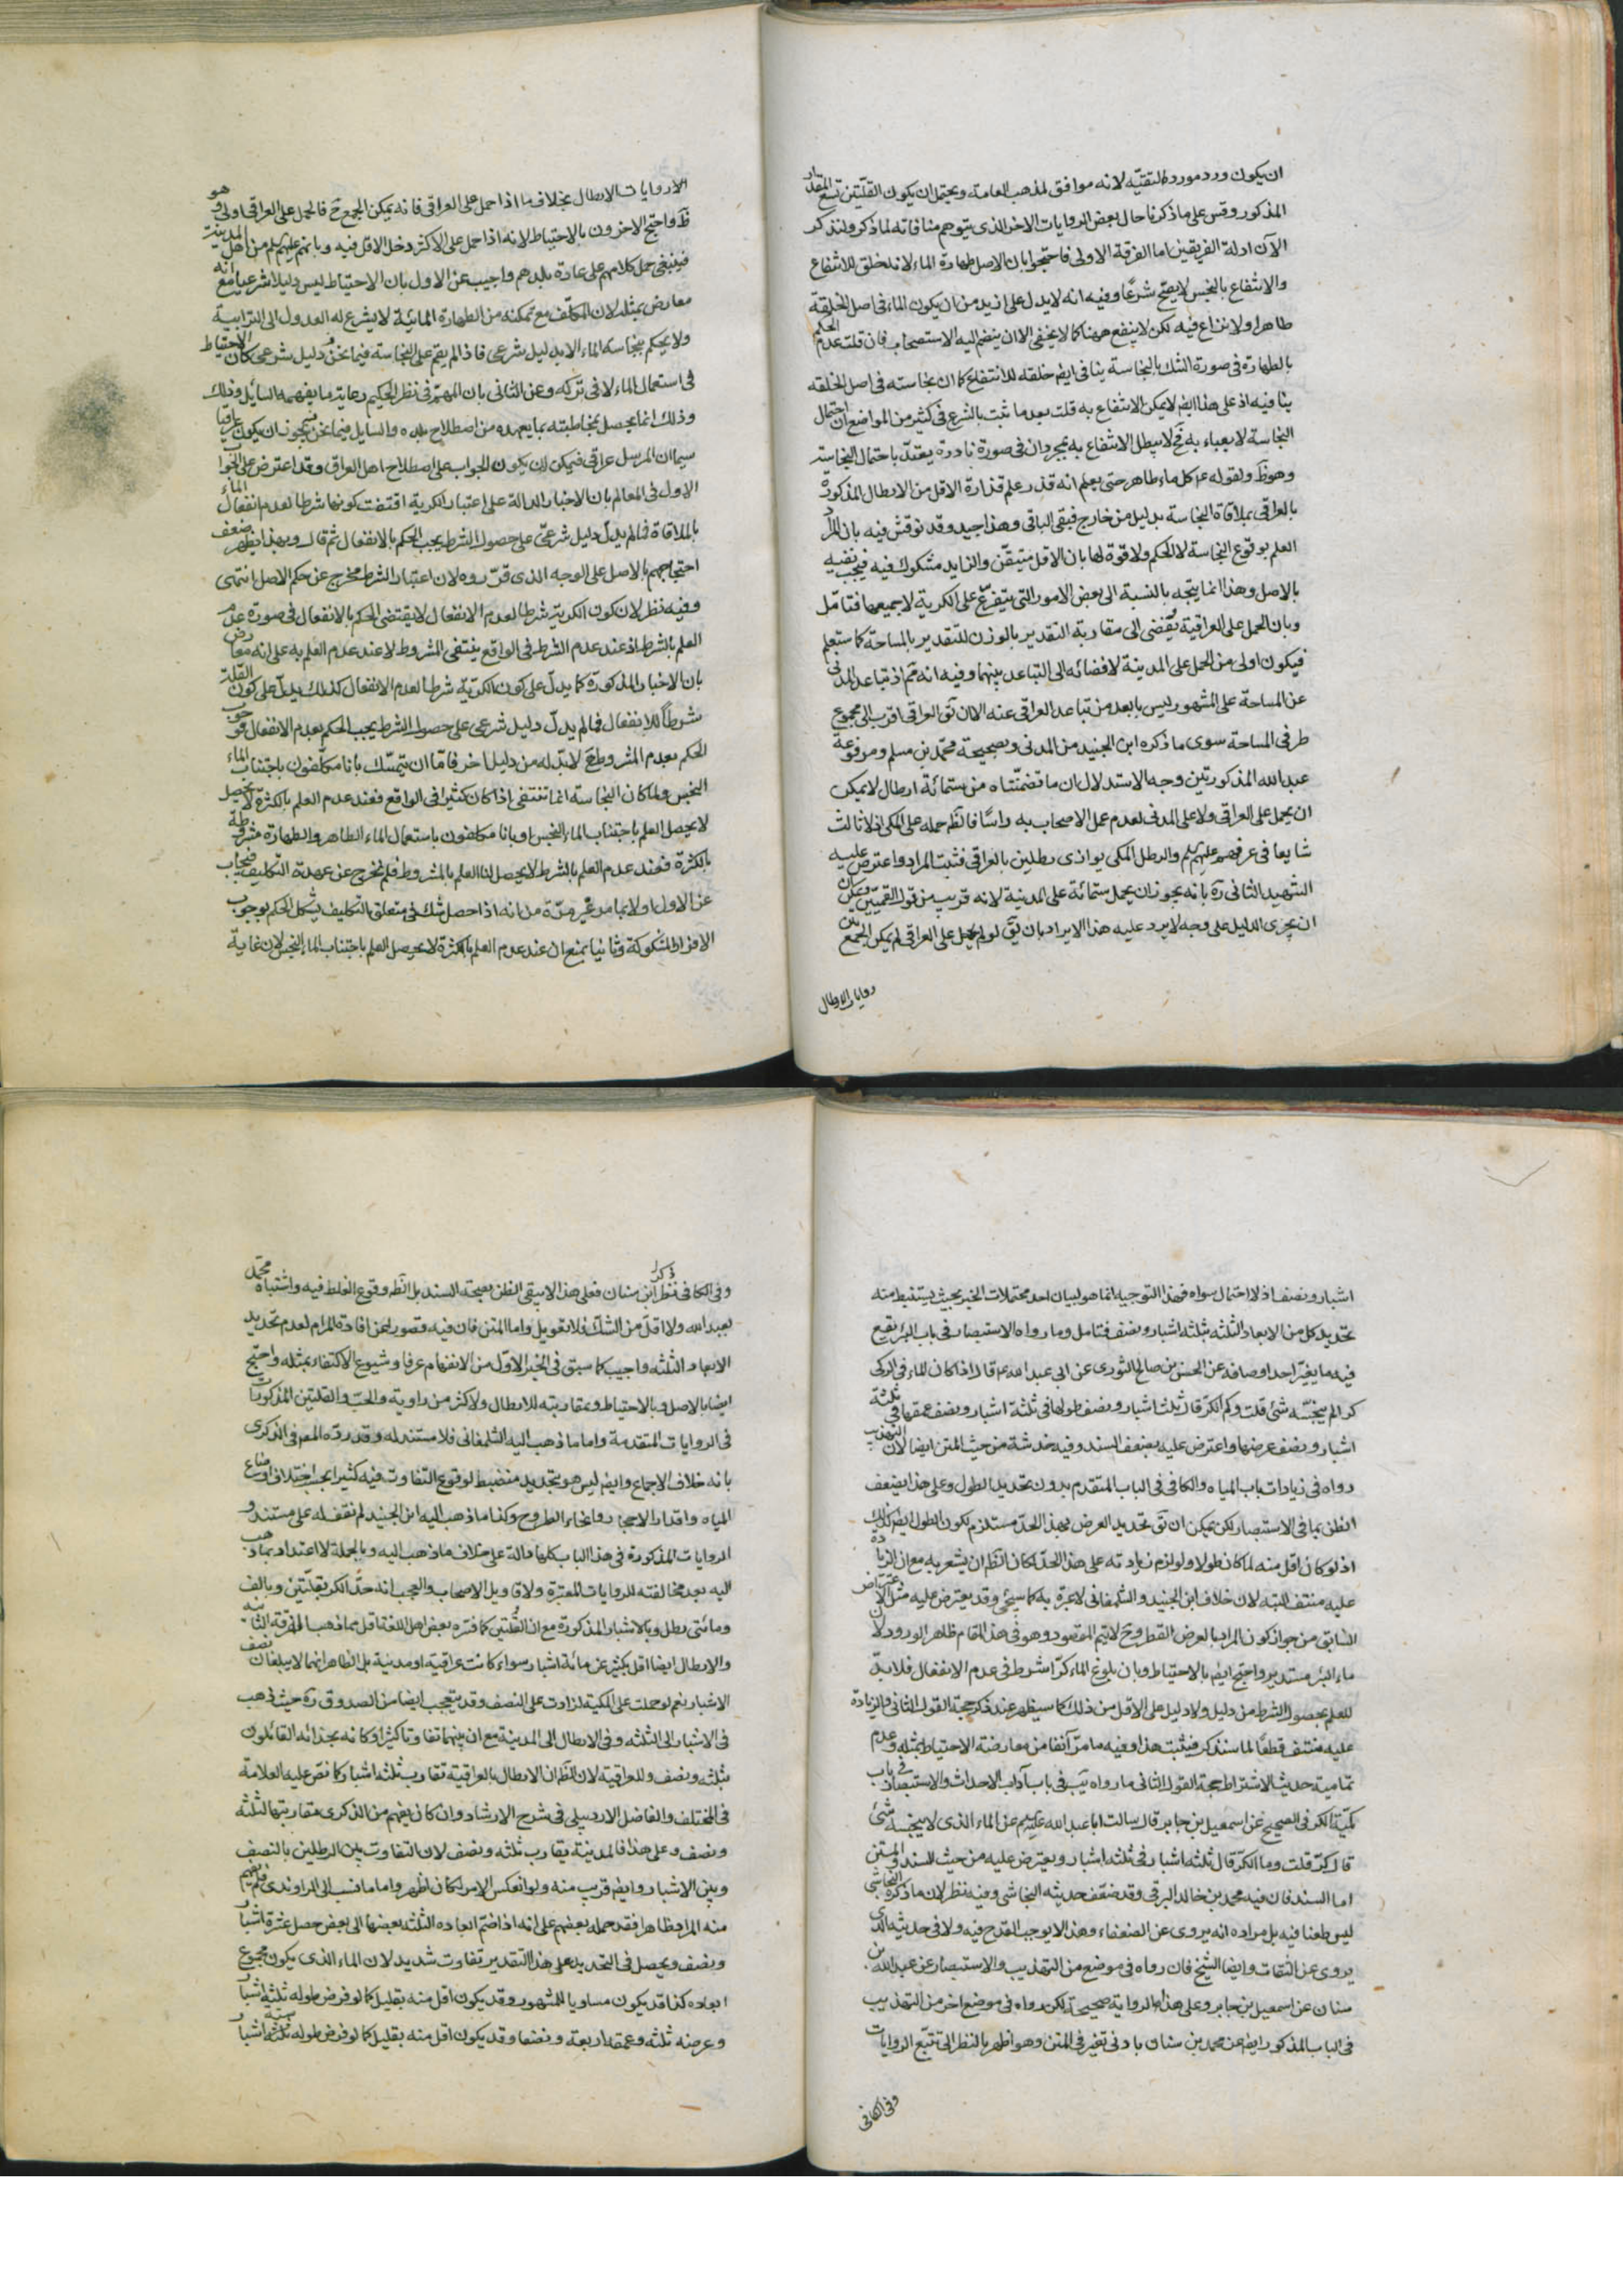 ان يكون ورد مورد التقيّه لانه موافق لمذهب العامة ويحتمل ان يكون القلّتين تسع المقدار
المذكور وقس على ما ذكرنا حال بعض الروايات الاخر الذى يتوهم منافاته لما ذكر ولنذكر
الآن ادلة الفريقين اما الفرقة الاولى فاحتجوا بان الاصل طهارة الماء لانه خلق للانتفاع
والانتفاع بالنجس لا يصح شرعًا وفيه انه لا يدل على ازيد من ان يكون الماء فى اصل الخلقة
طاهرا ولا نزاع فيه لكن لا ينفع ههنا كما لا يخفى الا ان ينضم اليه الاستصحاب فان قلت عدم الحكم
بالطهارة فى صورة الشك بالنجاسة ينافى ايضا خلقه للانتفاع كما ان نجاسته فى اصل الخلقه
ينافيه اذ على هذا ايضا لا يمكن الانتفاع به قلت بعد ما ثبت بالشرع فى كثير من المواضع ان احتمال
النجاسة لا يعباء به فح لا يبطل الانتفاع به بمجرد ان فى صورة نادرة يعتدّ باحتمال النجاسة
وهو ظ ولقوله ع كل ماء طاهر حتى يعلم انه قذر علم قذارة الاقل من الارطال المذكورة
بالعراقى بملاقاة النجاسة بدليل من خارج فبقى الباقى وهذا جيد وقد نوقش فيه بان المراد
العلم بوقوع النجاسة لا الحكم ولا قوة لها بان الاقل متيقّن والزايد مشكوك فيه فيجب نفيه
بالاصل وهذا انما يتجه بالنسبة الى بعض الامور التى يتفرع على الكرية لا جميعها فتامّل
وبان الحمل على العراقية يفضى الى مقاربة التقدير بالوزن للتقدير بالمساحة كما ستعلم
فيكون اولى من الحمل على المدينة لافضائه الى التباعد بينهما وفيه انه ثم اذ تباعد المدنى
عن المساحة على المشهور ليس بابعد من تباعد العراقى عنه الا ان يق العراقى اقرب الى مجموع
طرفى المساحة سوى ما ذكره ابن الجنيد من المدنى وبصحيحة محمّد بن مسلم ومرفوعة
عبد الله المذكورتين وجه الاستدلال ان ما تضمنتاه من ستمائة ارطال لا يمكن
ان يحمل على العراقى ولا على المدنى لعدم عمل الاصحاب به راسًا فالظ حمله على المكى اذ لا ثالث
شايعا فى عرفهم عليهم السلم والرطل المكى يوازى رطلين بالعراقى فثبت المراد واعترض عليه
الشهيد الثانى ره بانه يجوز ان يحمل ستمائة على المدينة لانه قريب من قول القميّين ويمكن
ان يجرى الدليل على وجه لا يرد عليه هذا الايراد بان يق لو لم يحمل على العراقى لم يمكن الجمع بين
روايات الارطال
الا روايات الارطال بخلاف ما اذا حمل على العراقى فانه يمكن الجمع ح فالحمل على العراقى اولى وهو
ظ واحتج الاخرون بالاحتياط لانه اذا حمل على الاكثر دخل الاقل فيه وبانهم عليهم السلم من اهل المدينة
فينبغى حمل كلامهم على عادة بلدهم واجيب عن الاول بان الاحتياط ليس دليلا شرعيا مع انه
معارض بمثله لان المكلّف مع تمكنه من الطهارة المائية لا يشرع له العدول الى الترابية
ولا يحكم بنجاسة الماء الا بدليل شرعى فاذا لم يقم على النجاسة فيما نحن فيه دليل شرعى كان الاحتياط
فى استعمال الماء لا فى تركه وعن الثانى بان المهمّ فى نظر الحكيم رعاية ما يفهمه السايل وذلك
وذلك انما يحصل بمخاطبته بما يعهده من اصطلاح بلده والسايل فيما نحن فيه يجوز ان يكون عراقيا
سيما ان المرسل عراقى فيمكن ان يكون الجواب على اصطلاح اهل العراق وقد اعترض على الجواب
الاول فى المعالم بان الاخبار الدالة على اعتبار الكرية اقتضت كونها شرطا لعدم انفعال الماء
بالملاقاة فما لم يدلّ دليل شرعىّ على حصول الشرط يجب الحكم بالانفعال ثم قال وبهذا يظهر ضعف
احتجاجهم بالاصل على الوجه الذى قرّروه لان اعتبار الشرط مخرج عن حكم الاصل انتهى
وفيه نظر لان كون الكرية شرطا لعدم الانفعال لا يقتضى الحكم بالانفعال فى صورة عدم
العلم بالشرط اذ عند عدم الشرط فى الواقع ينتفى المشروط لا عند عدم العلم به على انه معارض
بان الاخبار المذكورة كما يدلّ على كون الكريّة شرطا لعدم الانفعال كذلك يدلّ على كون القلة
شرطاً للانفعال فما لم يدلّ دليل شرعى على حصول الشرط يجب الحكم بعدم الانفعال فوجوب
الحكم بعدم المشروط ح لا بدّ له من دليل اخر فامّا ان يتمسّك بانا مكلّفون باجتناب الماء
النجس ولما كان النجاسة انما تنتفى اذا كان كثيرا فى الواقع فعند عدم العلم بالكثرة لا يحصل
لا يحصل العلم باجتناب الماء النجس او بانا مكلفون باستعمال الماء الطاهر والطهارة مشروطة
بالكثرة فعند عدم العلم بالشرط لا يحصل لنا العلم بالمشروط فلم نخرج عن عهدة التكليف فيجاب
عن الاول اولا بما مر غير مرّة من انه اذا حصل شك فى متعلق التكليف يشكل الحكم بوجوب
الافراط المشكوكة وثانيا بمنع ان عند عدم العلم بالكثرة لا يحصل العلم باجتناب الماء النجس لان غاية
اشبار ونصف اذ لا احتمال سواه فهذا التوجيه انما هو لبيان احد محتملات الخبر بحيث يستنبط منه
تحديد كل من الابعاد الثلثه بثلثه اشبار ونصف فتامل وما رواه الاستبصار فى باب البئر يقع
فيه ما يغيّر احد اوصافه عن الحسن بن صالح الثورى عن ابى عبد الله ع قال اذا كان الماء فى الركى
كرا لم ينجسّه شئ قلت وكم الكر قال ثلث اشبار ونصف طولها فى ثلثة اشبار ونصف عمقها فى ثلثة
اشبار ونصف عرضها واعترض عليه بضعف السند وفيه خدشة من حيث المتن ايضا لان التهذيب
رواه فى زيادات باب المياه والكافى فى الباب المتقدم بدون تحديد الطول وعلى هذا يضعف
الظن بما فى الاستبصار لكن يمكن ان يق تحديد العرض بهذا الحدّ مستلزم لكون الطول ايضا كذلك
اذ لو كان اقل منه لما كان طولا ولو لزم زيادته على هذا الحدّ لكان الظ ان يشعر به مع ان الزيادة
عليه منتف البتة لان خلاف ابن الجنيد والشلمغانى لا عبرة به كما سيجئ وقد يعترض عليه مثل الاعتراض
السابق من جواز كون المراد بالعرض القطر وح لا يتم المقصود وهو فى هذا المقام ظاهر الورود لان
ماء البئر مستدير واحتج ايضا بالاحتياط وبان بلوغ الماء كرّا شرط فى عدم الانفعال فلا بدّ
للعلم بحصول الشرط من دليل ولا دليل على الاقل من ذلك كما سيظهر عند ذكر حجة القول الثانى والزيادة
عليه منتف قطعًا لما سنذكر فيثبت هذا وفيه ما مرّ آنفا من معارضة الاحتياط بمثله وعدم
تمامية حديث الاشتراط حجة القول الثانى ما رواه يب فى باب آداب الاحداث والاستبصار فى باب
كمية الكر فى الصحيح عن اسمعيل بن جابر قال سالت ابا عبد الله عليه السلم عن الماء الذى لا ينجسه شئ
قال كرّ قلت وما الكرّ قال ثلثه اشبار فى ثلثه اشبار ويعترض عليه من حيث السند والمتن
اما السند فان فيه محمد بن خالد البرقى وقد ضعّف حديثه النجاشى وفيه نظر لان ما ذكره النجاشى
ليس طعنا فيه بل مراده انه يروى عن الضعفاء وهذا لا يوجب القدح فيه ولا فى حديثه الذى
يروى عن الثقات وايضا الشيخ فان رواه فى موضع من التهذيب والاستبصار عن عبد الله بن
سنان عن اسمعيل بن جابر وعلى هذا الرواية صحيحة لكن رواه فى موضع اخر من التهذيب
فى الباب المذكور ايضا عن محمد بن سنان بادنى تغير فى المتن وهو اظهر بالنظر الى تتبّع الروايات
وفى الكافى
وفى الكافى ذكر ابن سنان فعلى هذا لا يبقى الظن بصحة السند بل الظ وقوع الغلط فيه واشتباه محمّد
بعبد الله ولا اقل من الشكّ فلا تعويل واما المتن فان فيه قصورا عن افادة المرام لعدم تحديد
الابعاد الثلثه واجيب كما سبق فى الخبر الاوّل من الانفهام عرفا وشيوع الاكتفاء بمثله واحتج
ايضا بالاصل وبالاحتياط ومقاربته للارطال والاكثر من راوية والحبّ والقلتين المذكورات
فى الروايات المتقدمة واما ما ذهب اليه الشلمغانى فلا مستند له وقد ردّه المص فى الذكرى
بانه خلاف الاجماع وايضا ليس هو بتحديد منضبط لوقوع التفاوت فيه كثيرا بحسب اختلاف اوضاع
المياه واقدار الاحجار وانحاء الطرح وكذا ما ذهب اليه ابن الجنيد لم نقف له على مستند و
الروايات المذكورة فى هذا الباب كلها دالة على خلاف ما ذهب اليه وبالجملة لا اعتداد بما ذهب
اليه بعد مخالفته للروايات المعتبرة ولاقاويل الاصحاب والعجب انه حدّ الكر بقلّتين وبالف
ومائتى رطل وبالاشبار المذكورة مع ان القلّتين كما فسّره بعض اهل اللغة اقل مما ذهب الفرقة الثانية
والارطال ايضا اقل بكثير عن مائة اشبار سواء كانت عراقية او مدنية بل الظاهر انهما لا يبلغان نصف
الاشبار نعم لو حملت على المكية لزادت على النصف وقد يتعجب ايضا من الصدوق ره حيث ذهب
فى الاشبار الى الثلثه وفى الارطال الى المدينة مع ان بينهما تفاوتا كثيرا وكانه بحذائه القائلون
بثلثه ونصف وللعراقية لان الظ ان الارطال بالعراقية تقارب ثلثه اشبار كما نصّ عليه العلامة
فى المختلف والفاضل الاردبيلى فى شرح الارشاد وان كان يفهم من الذكرى مقاربتها لثلثه
ونصف وعلى هذا فالمدينة يقارب ثلثه ونصف لان التفاوت بين الرطلين بالنصف
وبين الاشبار وايضا قريب منه ولو انعكس الامر لكان اظهر واما ما نسب الى الراوندى فلم يفهم
منه المراد ظاهرا فقد حمله بعضهم على انه اذا ضمّ ابعاده الثلثه بعضها الى بعض حصل عشرة اشبار
ونصف ويحصل فى التحديد على هذا التقدير تفاوت شديد لان الماء الذى يكون مجموع
ابعاده كذا قد يكون مساويا للمشهور وقد يكون اقل منه بقليل كما لو فرض طوله ثلثة اشبار
وعرضه ثلثه وعمقه اربعة ونصفا وقد يكون اقل منه بقليل كما لو فرض طوله ستة اشبار